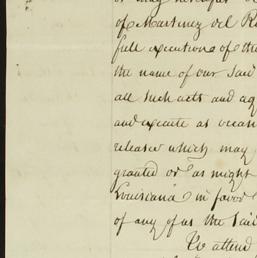 or may
of Martinez del R
full execution of the
the name of our said
all such acts and ag
and execute as occas
releases which may
granted or as might
Louisiana in favor
of any of us the Sai
To attend